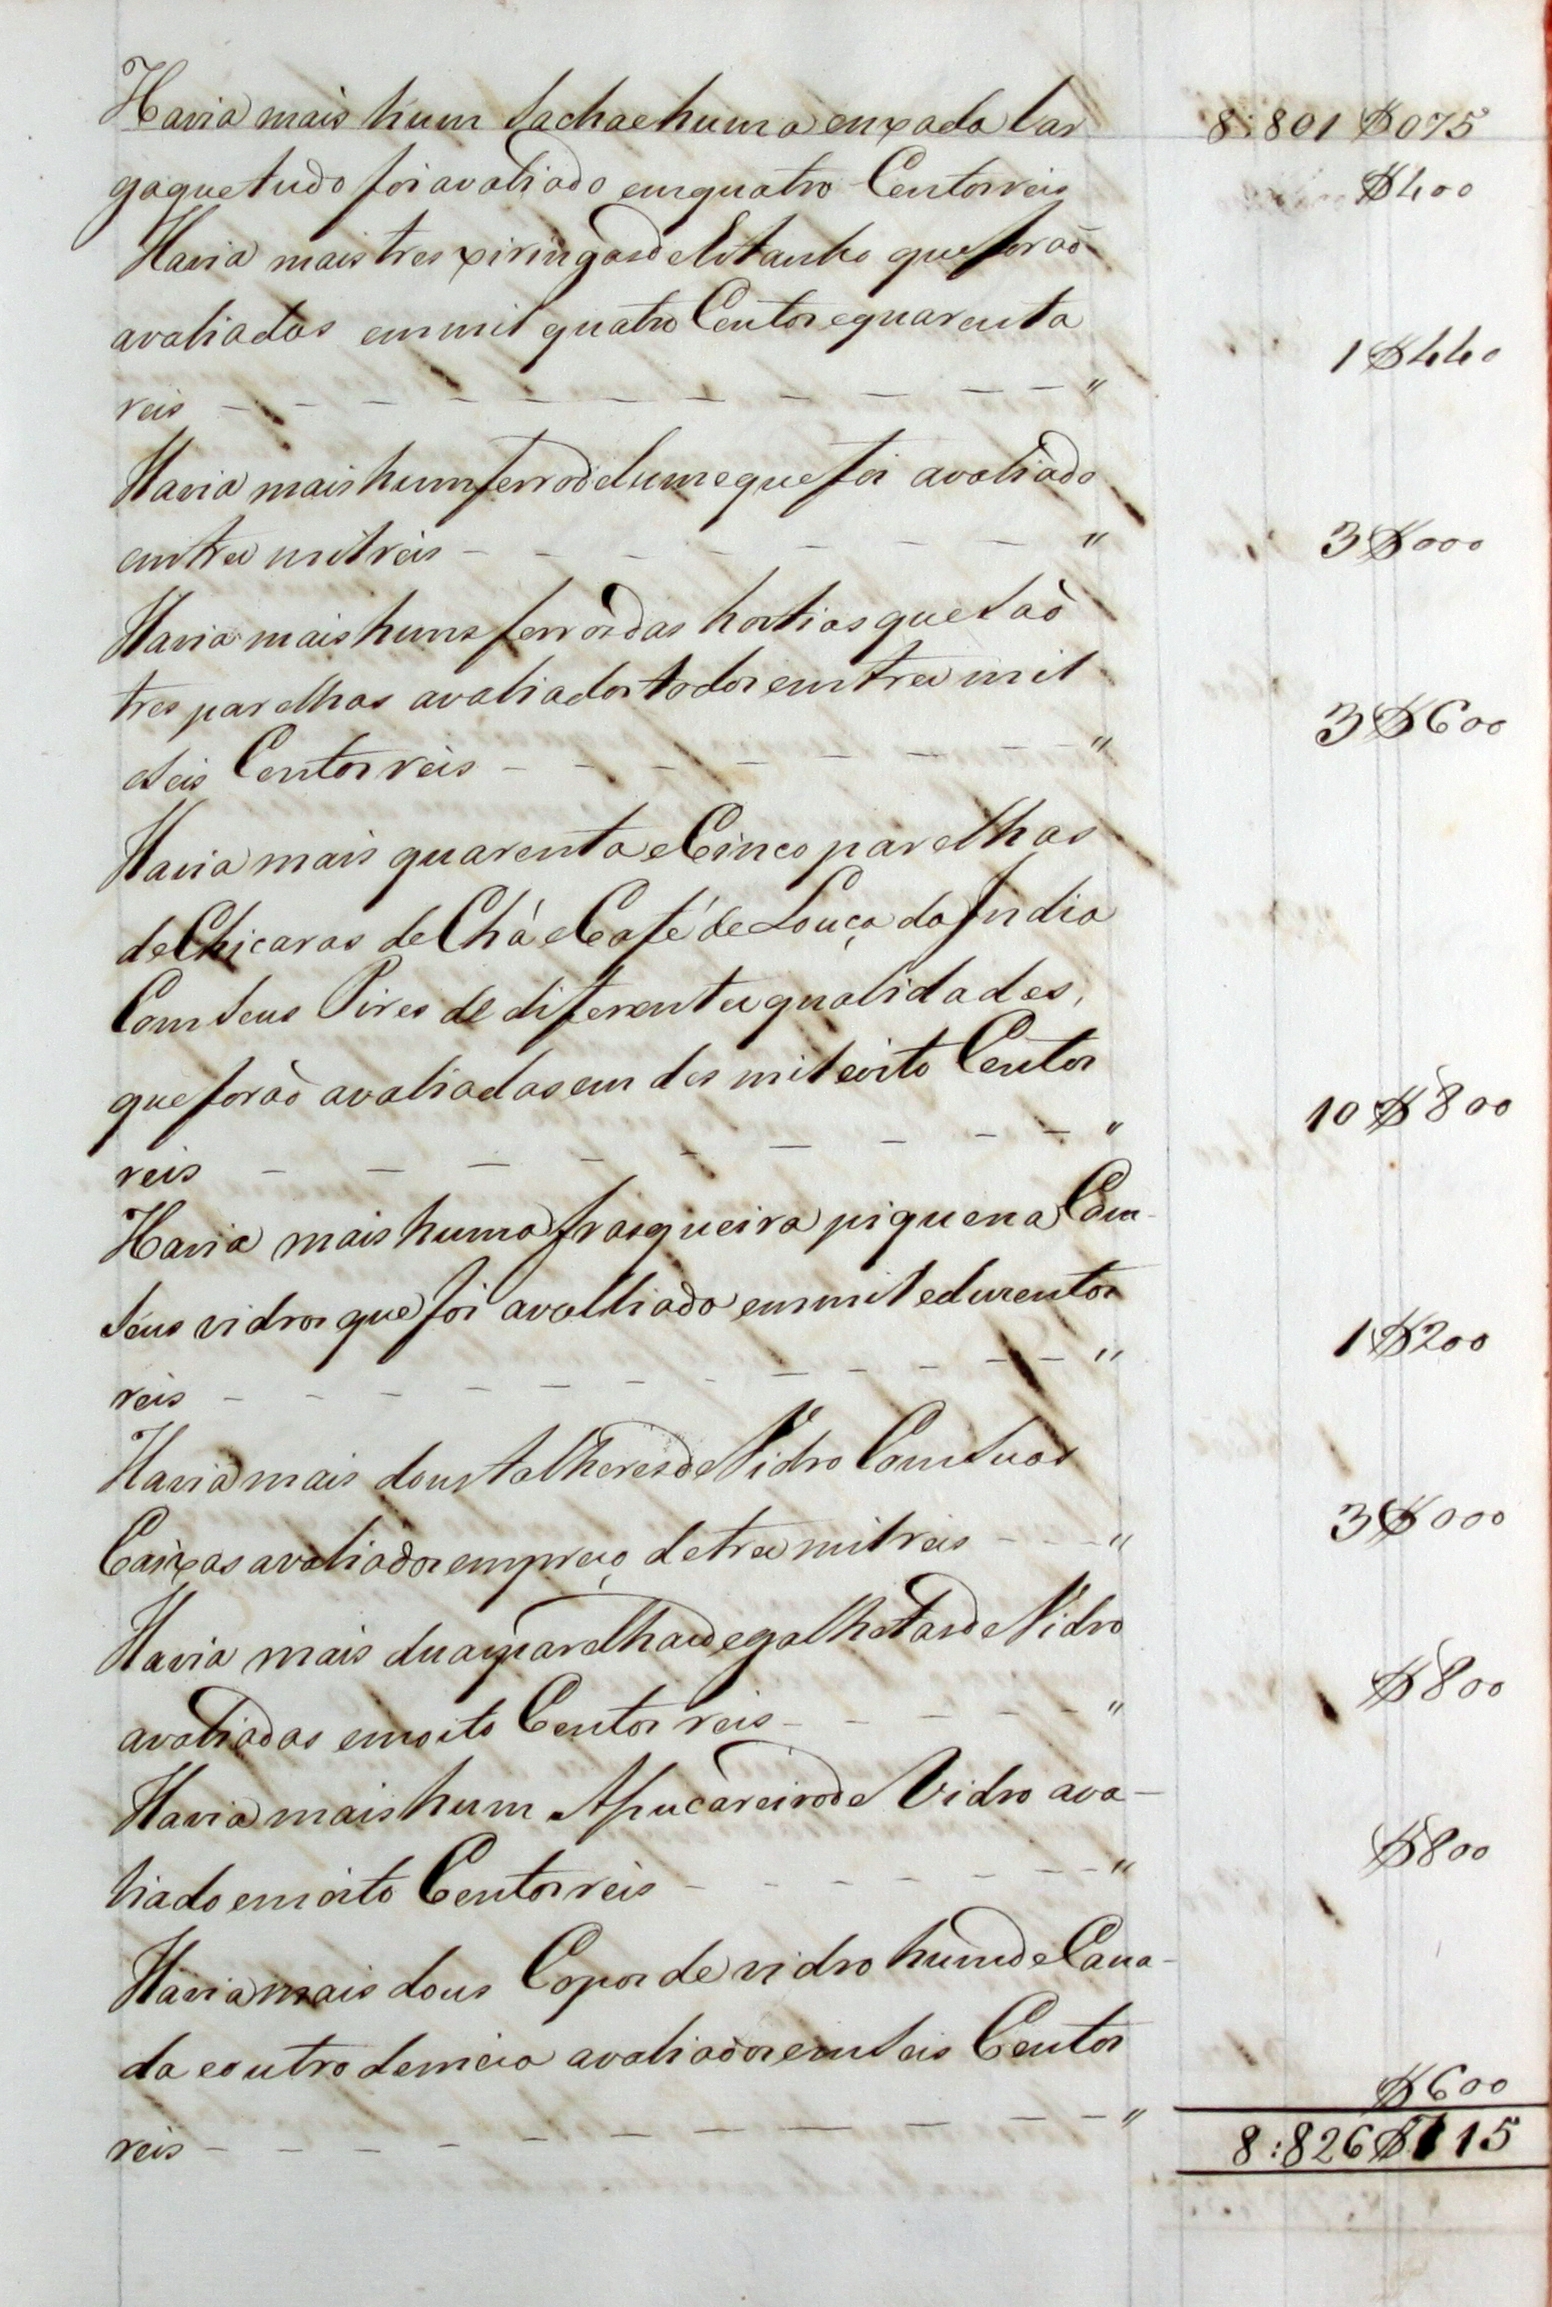 Havia mais hum sacho e huma enxada lar
8:801$075
ga que tudo foi avaliado em quatro Centos reis
$400
Havia mais tres xiringas de Estanho que forão
avaliadas em mil quatro Centos e quarenta
1$440
reis - - - - - - - - - - "
Havia mais hum ferro de lume que foi avaliado
em tres mil reis - - - - - - - "
3$000
Havia mais huns ferros das hostias que são
tres parelhas avaliados todos em tres mil
3$600
e seis Centos reis - - - - - - - "
Havia mais quarenta e Cinco parelhas
de Chicaras de Chá e Café de Louça da India
Com seus Pires de diferentes qualidades,
que forão avaliadas em des mil e oito Centos
10$800
reis - - - - - - - - - "
Havia mais huma frasqueira piquena Com
seus vidros que foi avalliada em mil e duzentos
1$200
reis - - - - - - - - - - - "
Havia mais dous talheres de Vidro Com suas
Caixas avaliados em preço de tres mil reis - - - "
3$000
Havia mais duas parelhas de galhetas de Vidro
avaliadas em oito Centos reis - - - - - "
$800
Havia mais hum Assucareiro de Vidro ava-
liado em oito Centos reis - - - - - - "
$800
Havia mais dous Copos de vidro hum de Cana-
da e outro de meia avaliados em seis Centos
$600
reis - - - - - - - - - - - "
8:826$715